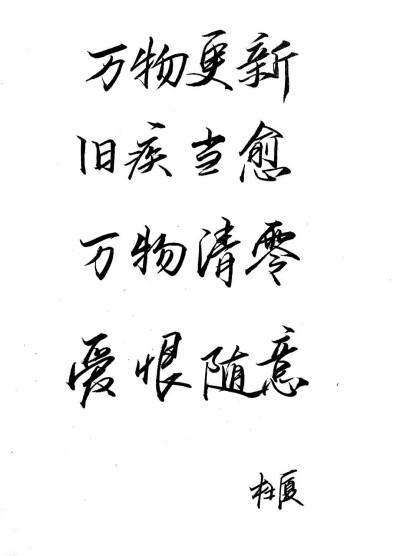 万物更新
旧疾当愈
万物清零
爱恨随意